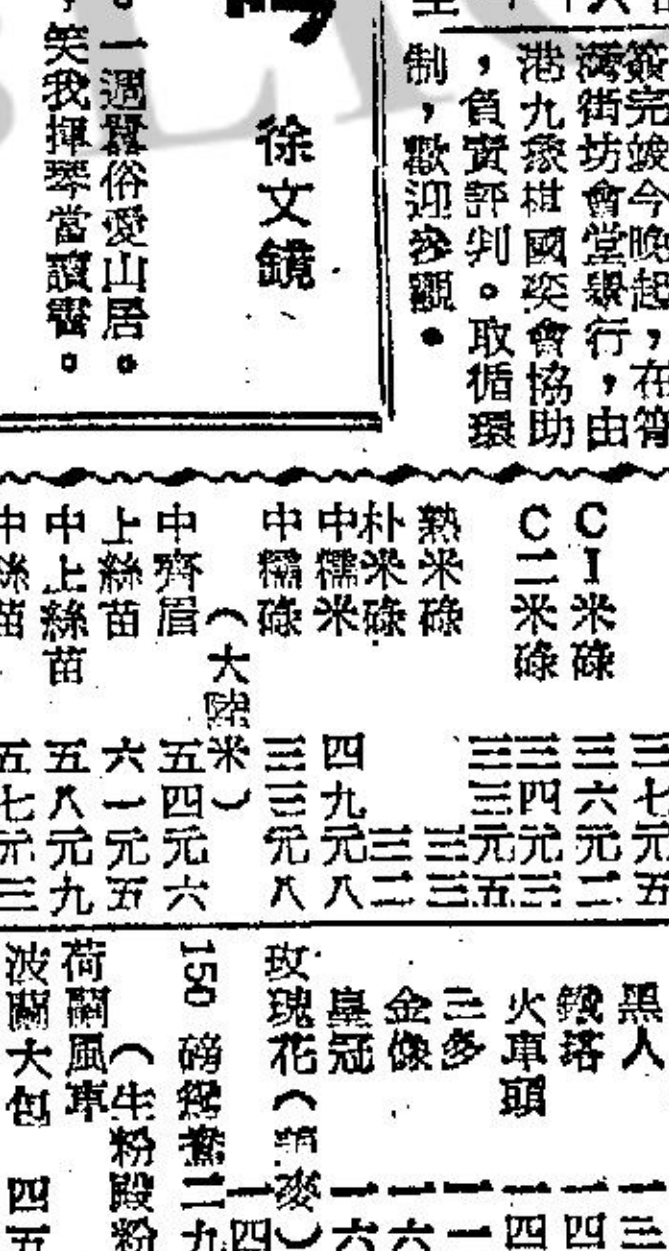 簽完竣今晚起，在筲
灣街坊會堂舉行，由
港九象棋國奕會協助
，負責評判。取循環
制，歡迎參觀。
徐文鏡
。一週囂俗愛山居。
，笑我揮琴當讀書。
三七元五
CI米碌 三六元二
C二米碌 三四元三
三三元五
熟米碌 三三
朴米碌 三二
中糯米 四九元八
中糯碌 三三元八
（大陸米）
中齊眉 五四元六
上絲苗 六一元五
中上絲苗 五八元九
中絲苗 五七元三
黑人 一三
鐵塔 一四
火車頭 一四
三多 一一
金像 一六
皇冠 一六
玫瑰花
一四
150磅 二九
（生粉
荷蘭風車
波蘭大包 四五